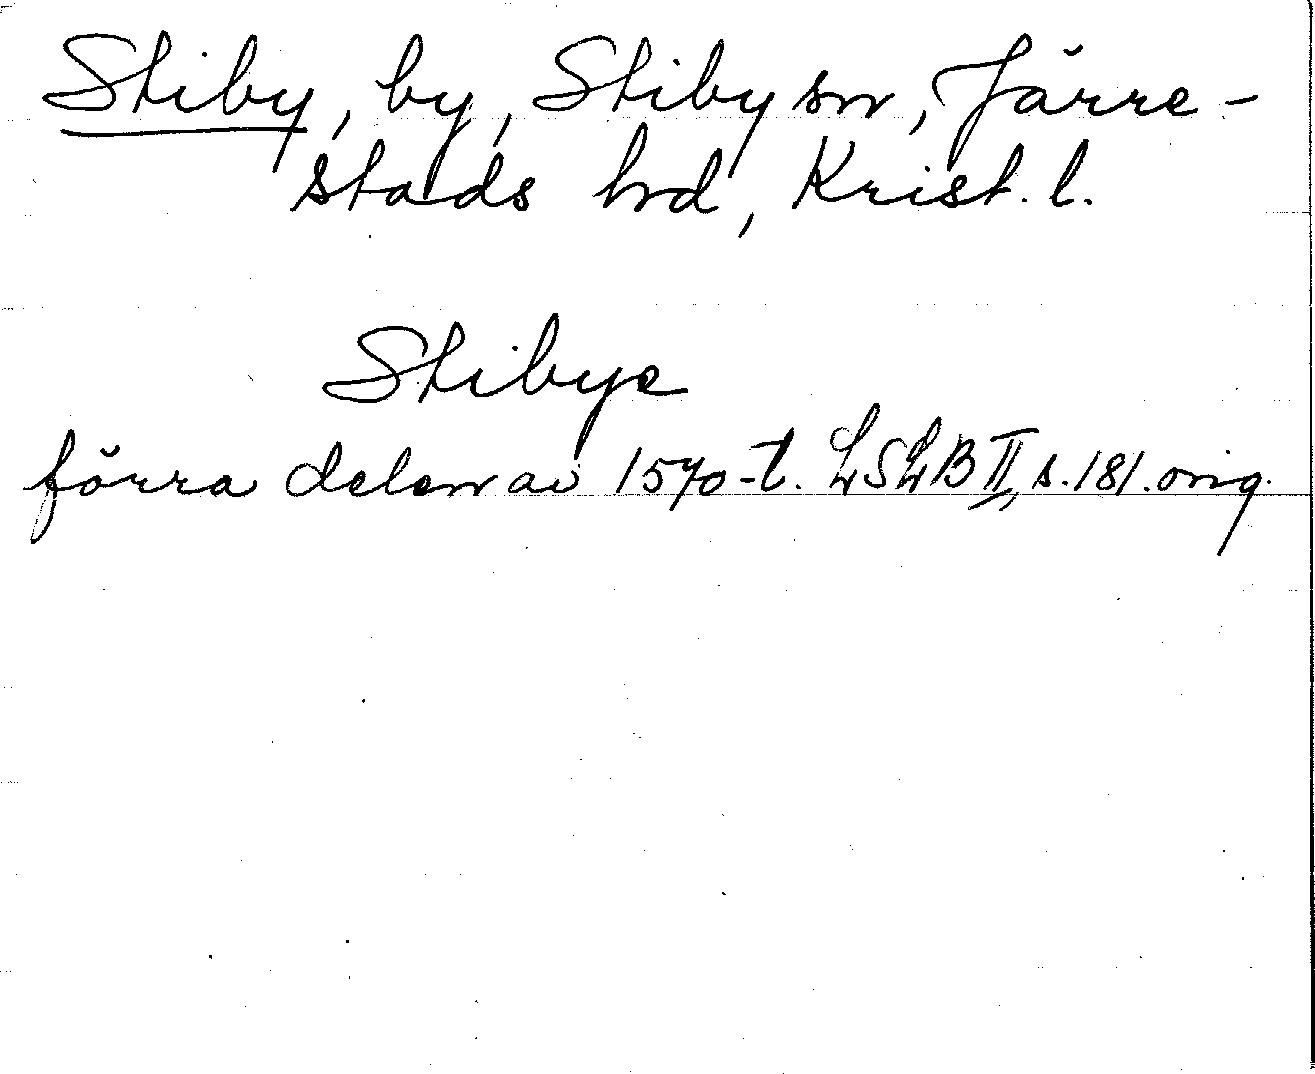 Stiby, by, Stiby sn, Järre-
stads hd, Krist. l.
Stibye
förra delen av 1570-t. LSLB II, s. 181. orig.